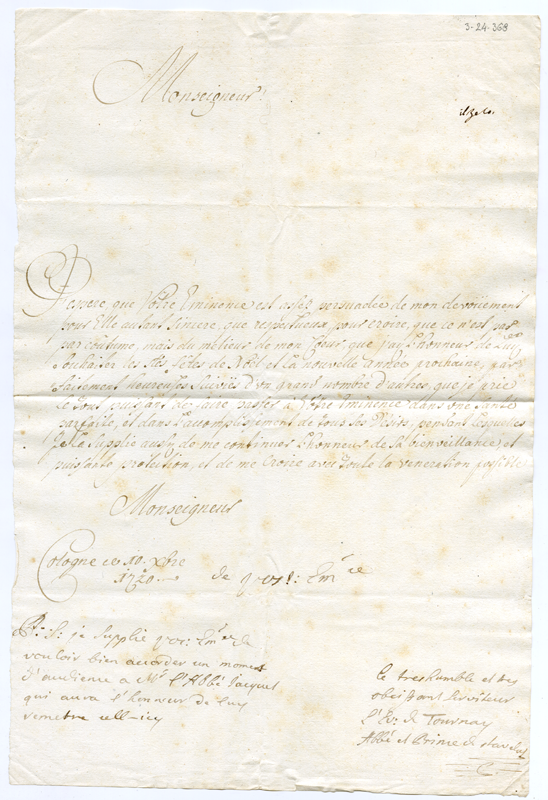 3-24-368
Monseigneur!
J'espere que Vôtre Eminence est assés persuadée de mon devoüement
pour Elle autant sincere, que respectueux pour croire, que ce n'est pas
par coutume, mais du milieu de mon Coeur, que j'ay l'honneur de Luy
souhaiter les Stes fêtes de et la nouvelle année prochaine, par
faitement heureuses suivies d'un grand nombre d'autres, que je prie
le tout puissant de faire passer à Vôtre Eminence dans une santé
parfaite, et dans l'accomplissement de tous ses Désirs, pendant lesquelles
je La supplie aussy de me continuer l'honneur de sa bienveillance, et
puissante protection, et de me croire avec toute la veneration possible
Monseigneur
Cologne ce 10. xbre
1720
de vos!: Emce
P: S: je supplie vos: Emce de
vouloir bien accorder un moment
d'audience a Mr l'Abbé Jacquet
qui aura l'honneur de luy
remettre celle-icy
le tres humble et tres
obeissant serviteur
l'Ev: de Tournay
Abbé et Prince de Stavelot